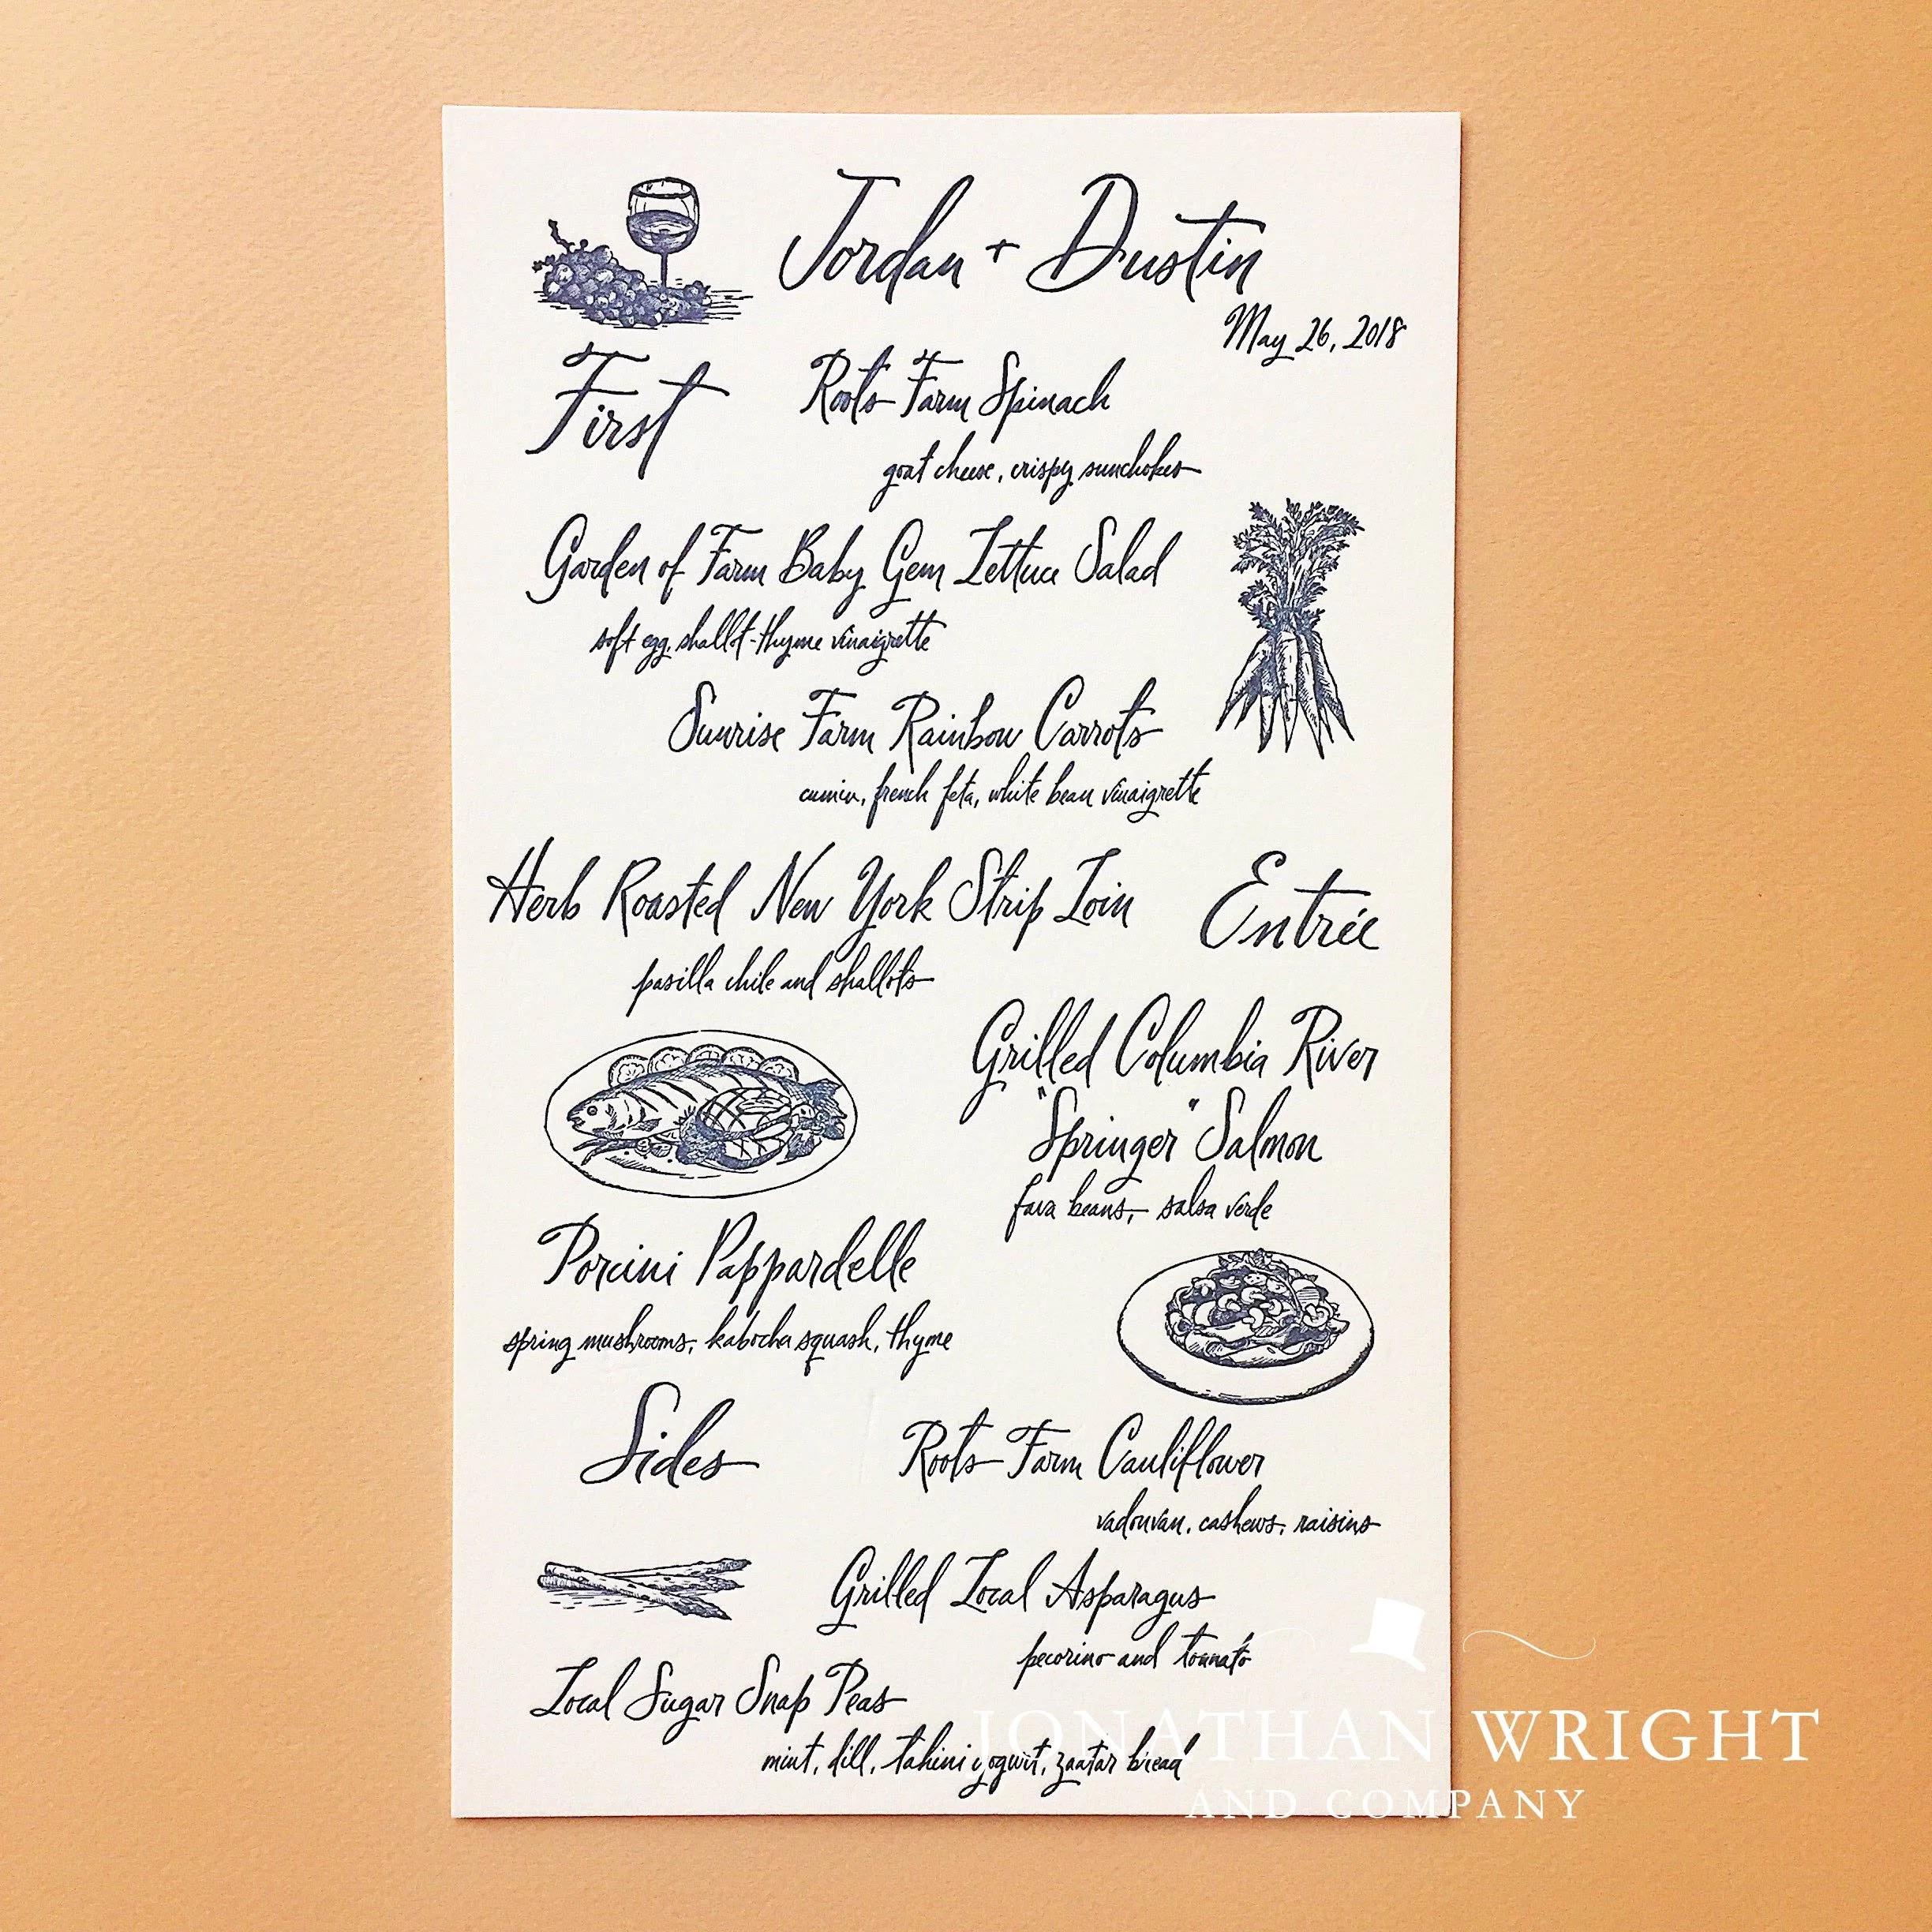 Jordan + Dustin
May 26, 2018
First
Roots Farm Spinach
goat cheese, crispy sunchokes
Garden of Farm Baby Gem Lettuce Salad
soft egg, shallot-thyme vinaigrette
Sunrise Farm Rainbow Carrots
cumin, french feta, white bean vinaigrette
Herb Roasted New York Strip Loin
Entrée
pasilla chile and shallots
Grilled Columbia River
"Springer" Salmon
fava beans, salsa verde
Porcini Pappardelle
spring mushrooms, kabocha squash, thyme
Sides
Roots Farm Cauliflower
vadouvan, cashews, raisins
Grilled Local Asparagus
pecorino and tonnato
Local Sugar Snap Peas
mint, dill, tahini yogurt, zaatar bread
JONATHAN WRIGHT
AND COMPANY